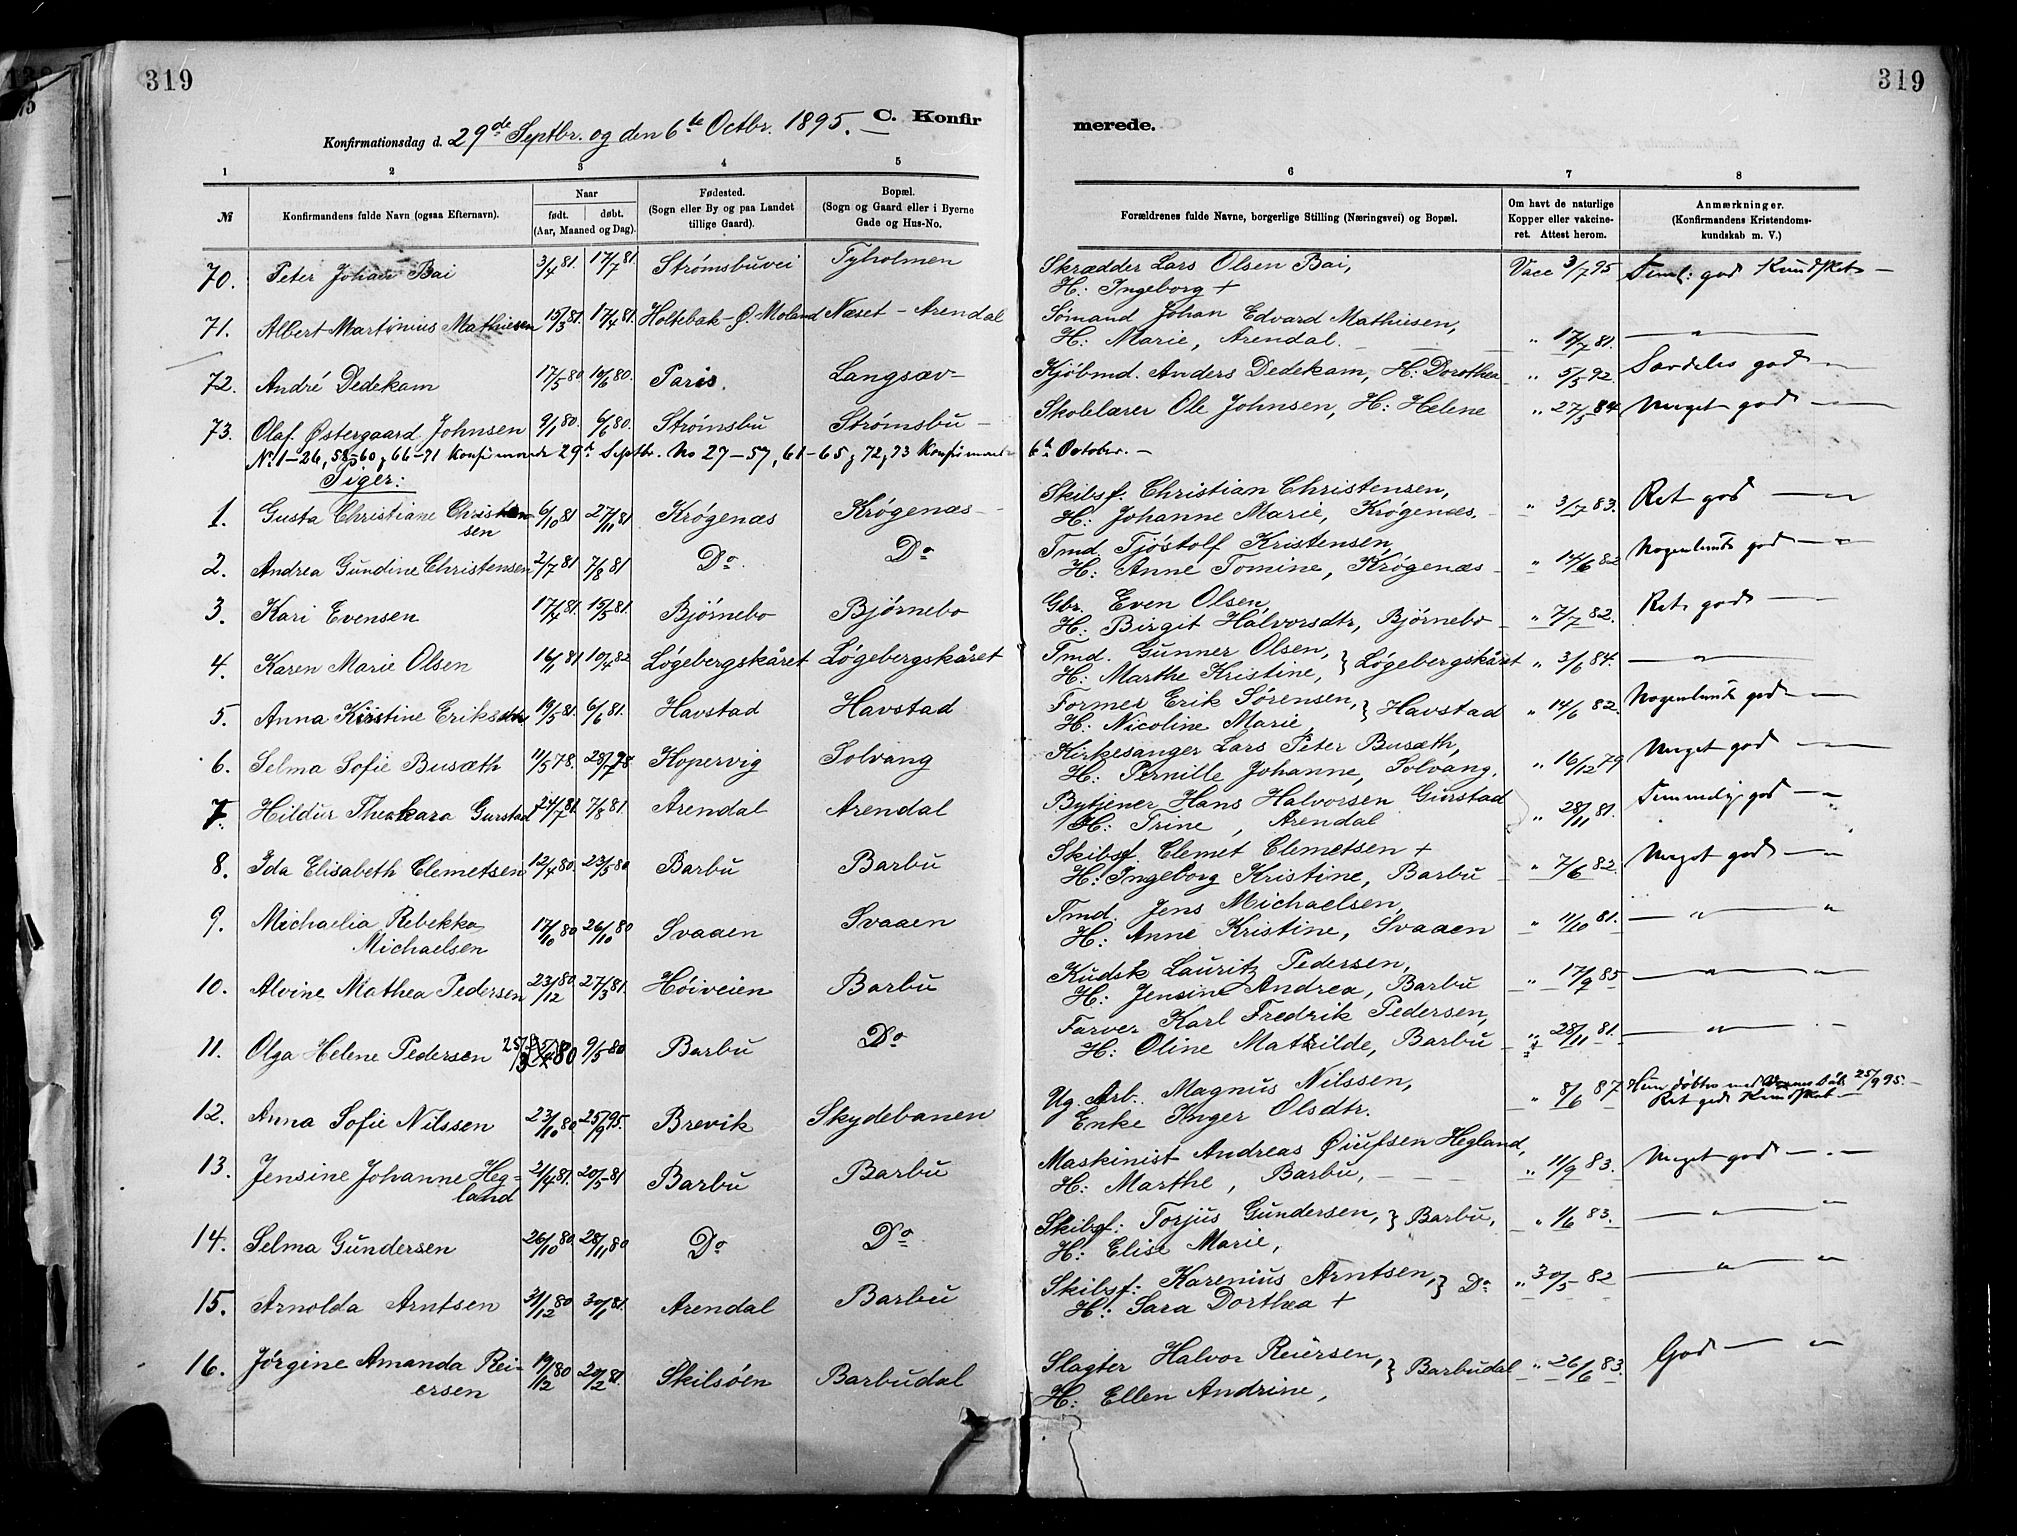 319
319
Konfirmationsdag d. 29de Septbr. og den 6te Octbr. 1895. C. Konfir
merede.
1 2 3 4 5 6 7 8
№ Konfirmandens fulde Navn (ogsaa Efternavn). Naar født. døbt. (Aar, Maaned og Dag). Fødested. (Sogn eller By og paa Landet tillige Gaard). Bopæl. (Sogn og Gaard eller i Byerne Gade og Hus-No.
Forældrenes fulde Navne, borgerlige Stilling (Næringsvei) og Bopæl. Om havt de naturlige Kopper eller vakcineret. Attest herom. Anmærkninger. (Konfirmandens Kristendomskundskab m. V.)
70. Peter Johan Bai 3/4 81. 17/7 81. Strømsbuvei Tyholmen Skrædder Lars Olsen Bai, Vacc 3/7 95 Teml: god Kundsket
H: Ingeborg +
71. Albert Martinius Mathiesen 15/3 81. 17/4 81. Holtebak - Ø. Moland Næset - Arendal Sømand Johan Edvard Mathiesen,
H: Marie, Arendal. " 17/7 81. — " —
72. André Dedekam 17/5 80 10/6 80. Paris. Langsæv- Kjøbmd. Anders Dedekam, H: Dorothea " 5/5 92. Særdeles god
73. Olaf Østergaard Johnsen 9/1 80. 6/6 80. Strømsbu Strømsbu - Skolelærer Ole Johnsen, H: Helene " 27/5 84 Meget god
No 1-26, 58-60, 66-71 Konfirmande 29de Septbr. No 27-57, 61-65, 72, 73 Konfirmande 6te October. —
Piger:
1. Gusta Christiane Christen 6/10 81 27/11 81 Krøgenæs Krøgenæs Skibsf. Christian Christensen,
sen H: Johanne Marie, Krøgenæs. " 3/7 83. Ret god
2. Andrea Gundine Christensen 2/7 81 7/8 81 Do Do Tmd. Tjøstolf Kristensen,
H: Anne Tomine, Krøgenæs " 14/6 82 Nogenlunde god
3. Kari Evensen 17/4 81. 15/5 81. Bjørnebo Bjørnebo Gbr. Even Olsen,
H: Birgit Halvorsdtr, Bjørnebo " 7/7 82. Ret god
4. Karen Marie Olsen 16/1 81 10/4 82 Løgebergskåret Løgebergskåret Tmd. Gunner Olsen,
H: Marthe Kristine, } Løgebergskåret " 3/6 84. — " —
5. Anna Kirstine Eriksdtr 19/5 81. 6/6 81. Havstad Havstad Former Erik Sørensen,
H: Nicoline Marie } Havstad " 14/6 82. Nogenlunde god
6. Selma Sofie Busæth 11/5 78. 28/7 78. Kopervig Solvang Kirkesanger Lars Peter Busæth,
H: Pernille Johanne, Solvang. " 16/12 79 Meget god
7. Hildur Theakara Gurstad 24/7 81. 7/8 81. Arendal Arendal Bytjener Hans Halvorsen Gurstad
H: Trine, Arendal " 28/11 81. Temmelig god
8. Ida Elisabeth Clemetsen 12/4 80. 23/5 80 Barbu Barbu Skibsf. Clemet Clemetsen +
H: Ingeborg Kristine, Barbu " 7/6 82. Meget god
9. Michaelia Rebekka 17/10 80 26/10 80 Svaaen Svaaen Tmd. Jens Michaelsen,
Michaelsen H: Anne Kristine, Svaaen " 11/10 81. — " — "
10. Alvine Mathea Pedersen 23/12 80. 27/3 81. Høiveien Barbu Kudsk Lauritz Pedersen,
H: Jensine Andrea, Barbu " 17/9 85 — " — "
11. Olga Helene Pedersen 25/3 80 9/5 80 Barbu Do Farver Karl Fredrik Pedersen,
H: Oline Mathilde, Barbu " 28/11 81. — " —
12. Anna Sofie Nilssen 23/10 80 25/9 95. Brevik Skydebanen Ug. Arb. Magnus Nilssen,
Enke Inger Olsdtr. " 8/6 87 Hun døbtes med 25/9 95.
Ret god Kundsket
13. Jensine Johanne Heg- 2/4 81. 20/5 81 Barbu Barbu Maskinist Andreas Hegland,
land H: Marthe, Barbu, " 11/9 83. Meget god
14. Selma Gundersen 26/10 80 28/11 80 Do Do Skibsf: Torjus Gundersen, } Barbu,
H: Elise Marie, " 1/6 83. — " — "
15. Arnolda Arntsen 31/12 80 30/1 81. Arendal Barbu Skibsf: Karenius Arntsen, } Do
H: Sara Dorthea + " 30/5 82 — " — "
16. Jørgine Amanda Rei- 19/12 80 20/2 81. Skilsøen Barbudal Slagter Halvor Reiersen,
ersen H: Ellen Andrine, } Barbudal " 26/6 83. God — "